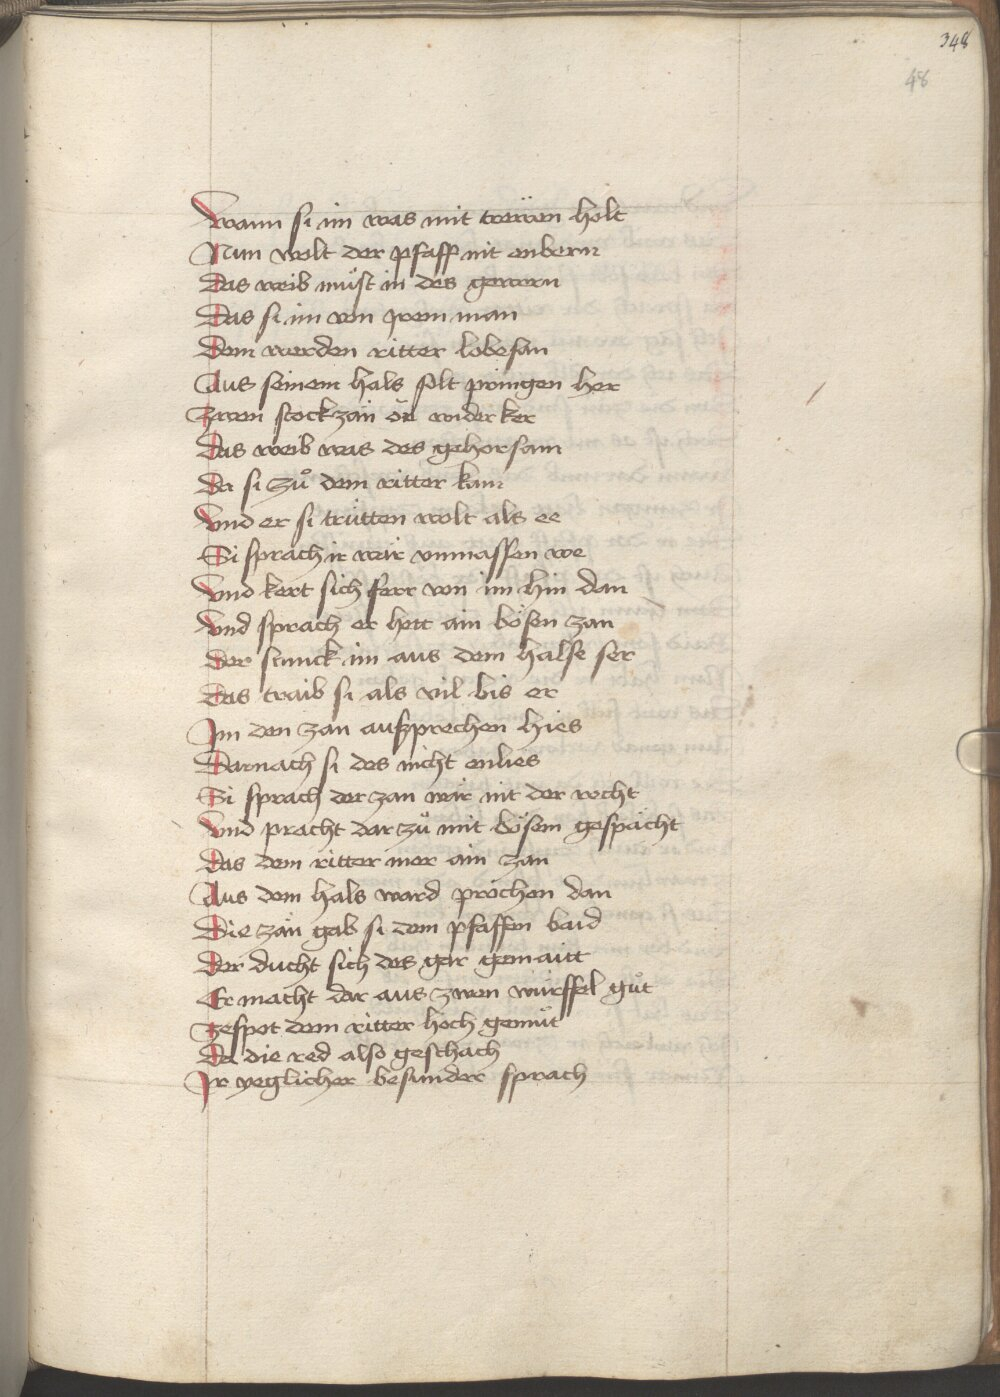 348
48
Wann si im was mit trewen holt
Nun wolt der pfaff nit enbern
Das weib müst in des gewern
Das si im von jrem man
Dem werden ritter lobesan
Aus seinem hals solt pringen her
Zwen stockzän on widerker
Das weib was des gehorsam
Da si zů dem ritter kam
Vnd er si trütten wolt als ee
Si sprach ir wär vnmassen we
Vnd kert sich ferr von im hin dan
Vnd sprach er hett ain bösen zan
Der stunck im aus dem halse ser
Das traib si als vil bis er
Im den zan auszprechen hies
Darnach si des nicht enlies
Si sprach der zan wär nit der recht
Vnd pracht dar zů mit bösem gespächt
Das dem ritter mer ain zan
Aus dem hals ward prochen dan
Die zän gab si dem pfaffen baid
Der ducht sich des gar gemaitt
Er macht dar aus zwen würffel gůt
Zespot dem ritter hoch gemůt
Da die red also geschach
Ir yeglicher besunder sprach